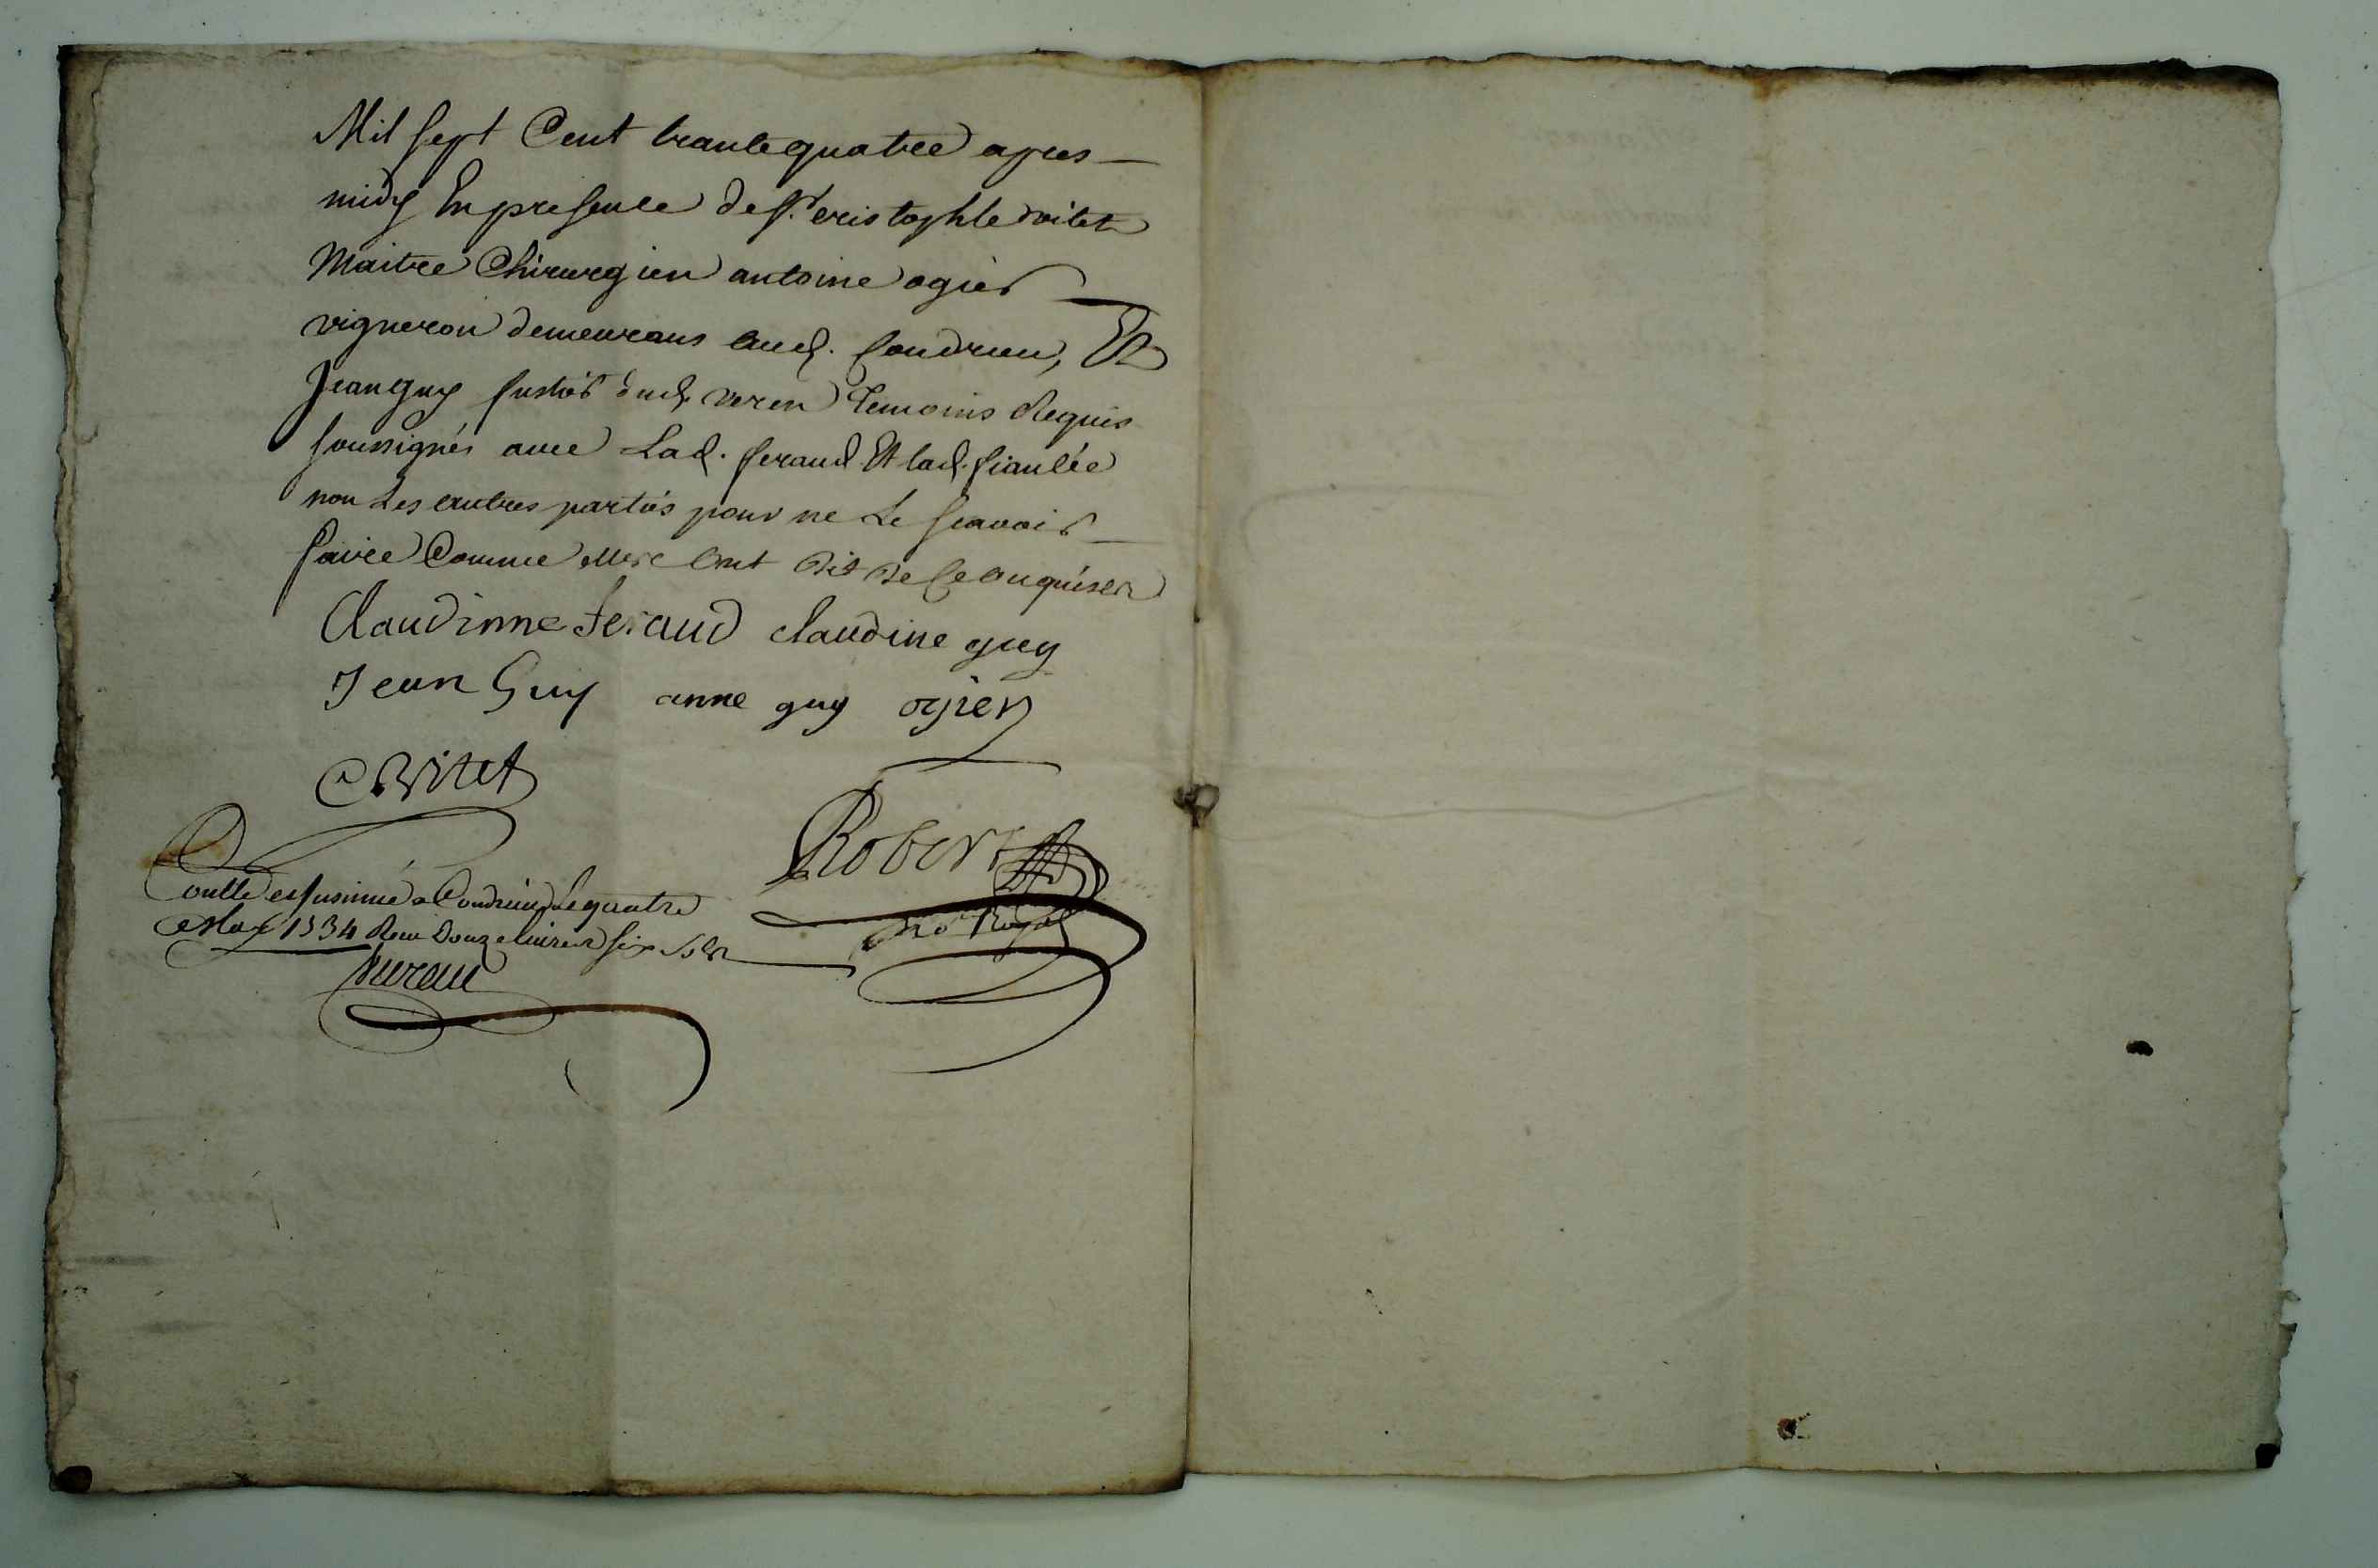 Mil sept Cent trante quatre apres
midy En presence de Sr. cristophle vitet
Maitre Chirurgien antoine ogier
vigneron demeurans aud. Condrieu, Et
Jean guy fustier dud. veren Temoins Requis
soussignés avec Lad. feraud Et lad. fiancée
non Les autres parties pour ne Le scavoir
faire Comme elles ont dit de ce enquises
Claudinne feraud claudine guy
Jean Guy anne guy ogier
C Vitet
Robert
No.re Royal
Conllé et Insinué a Condrieu Le quatre
May 1734 Receu Douze livres six sols